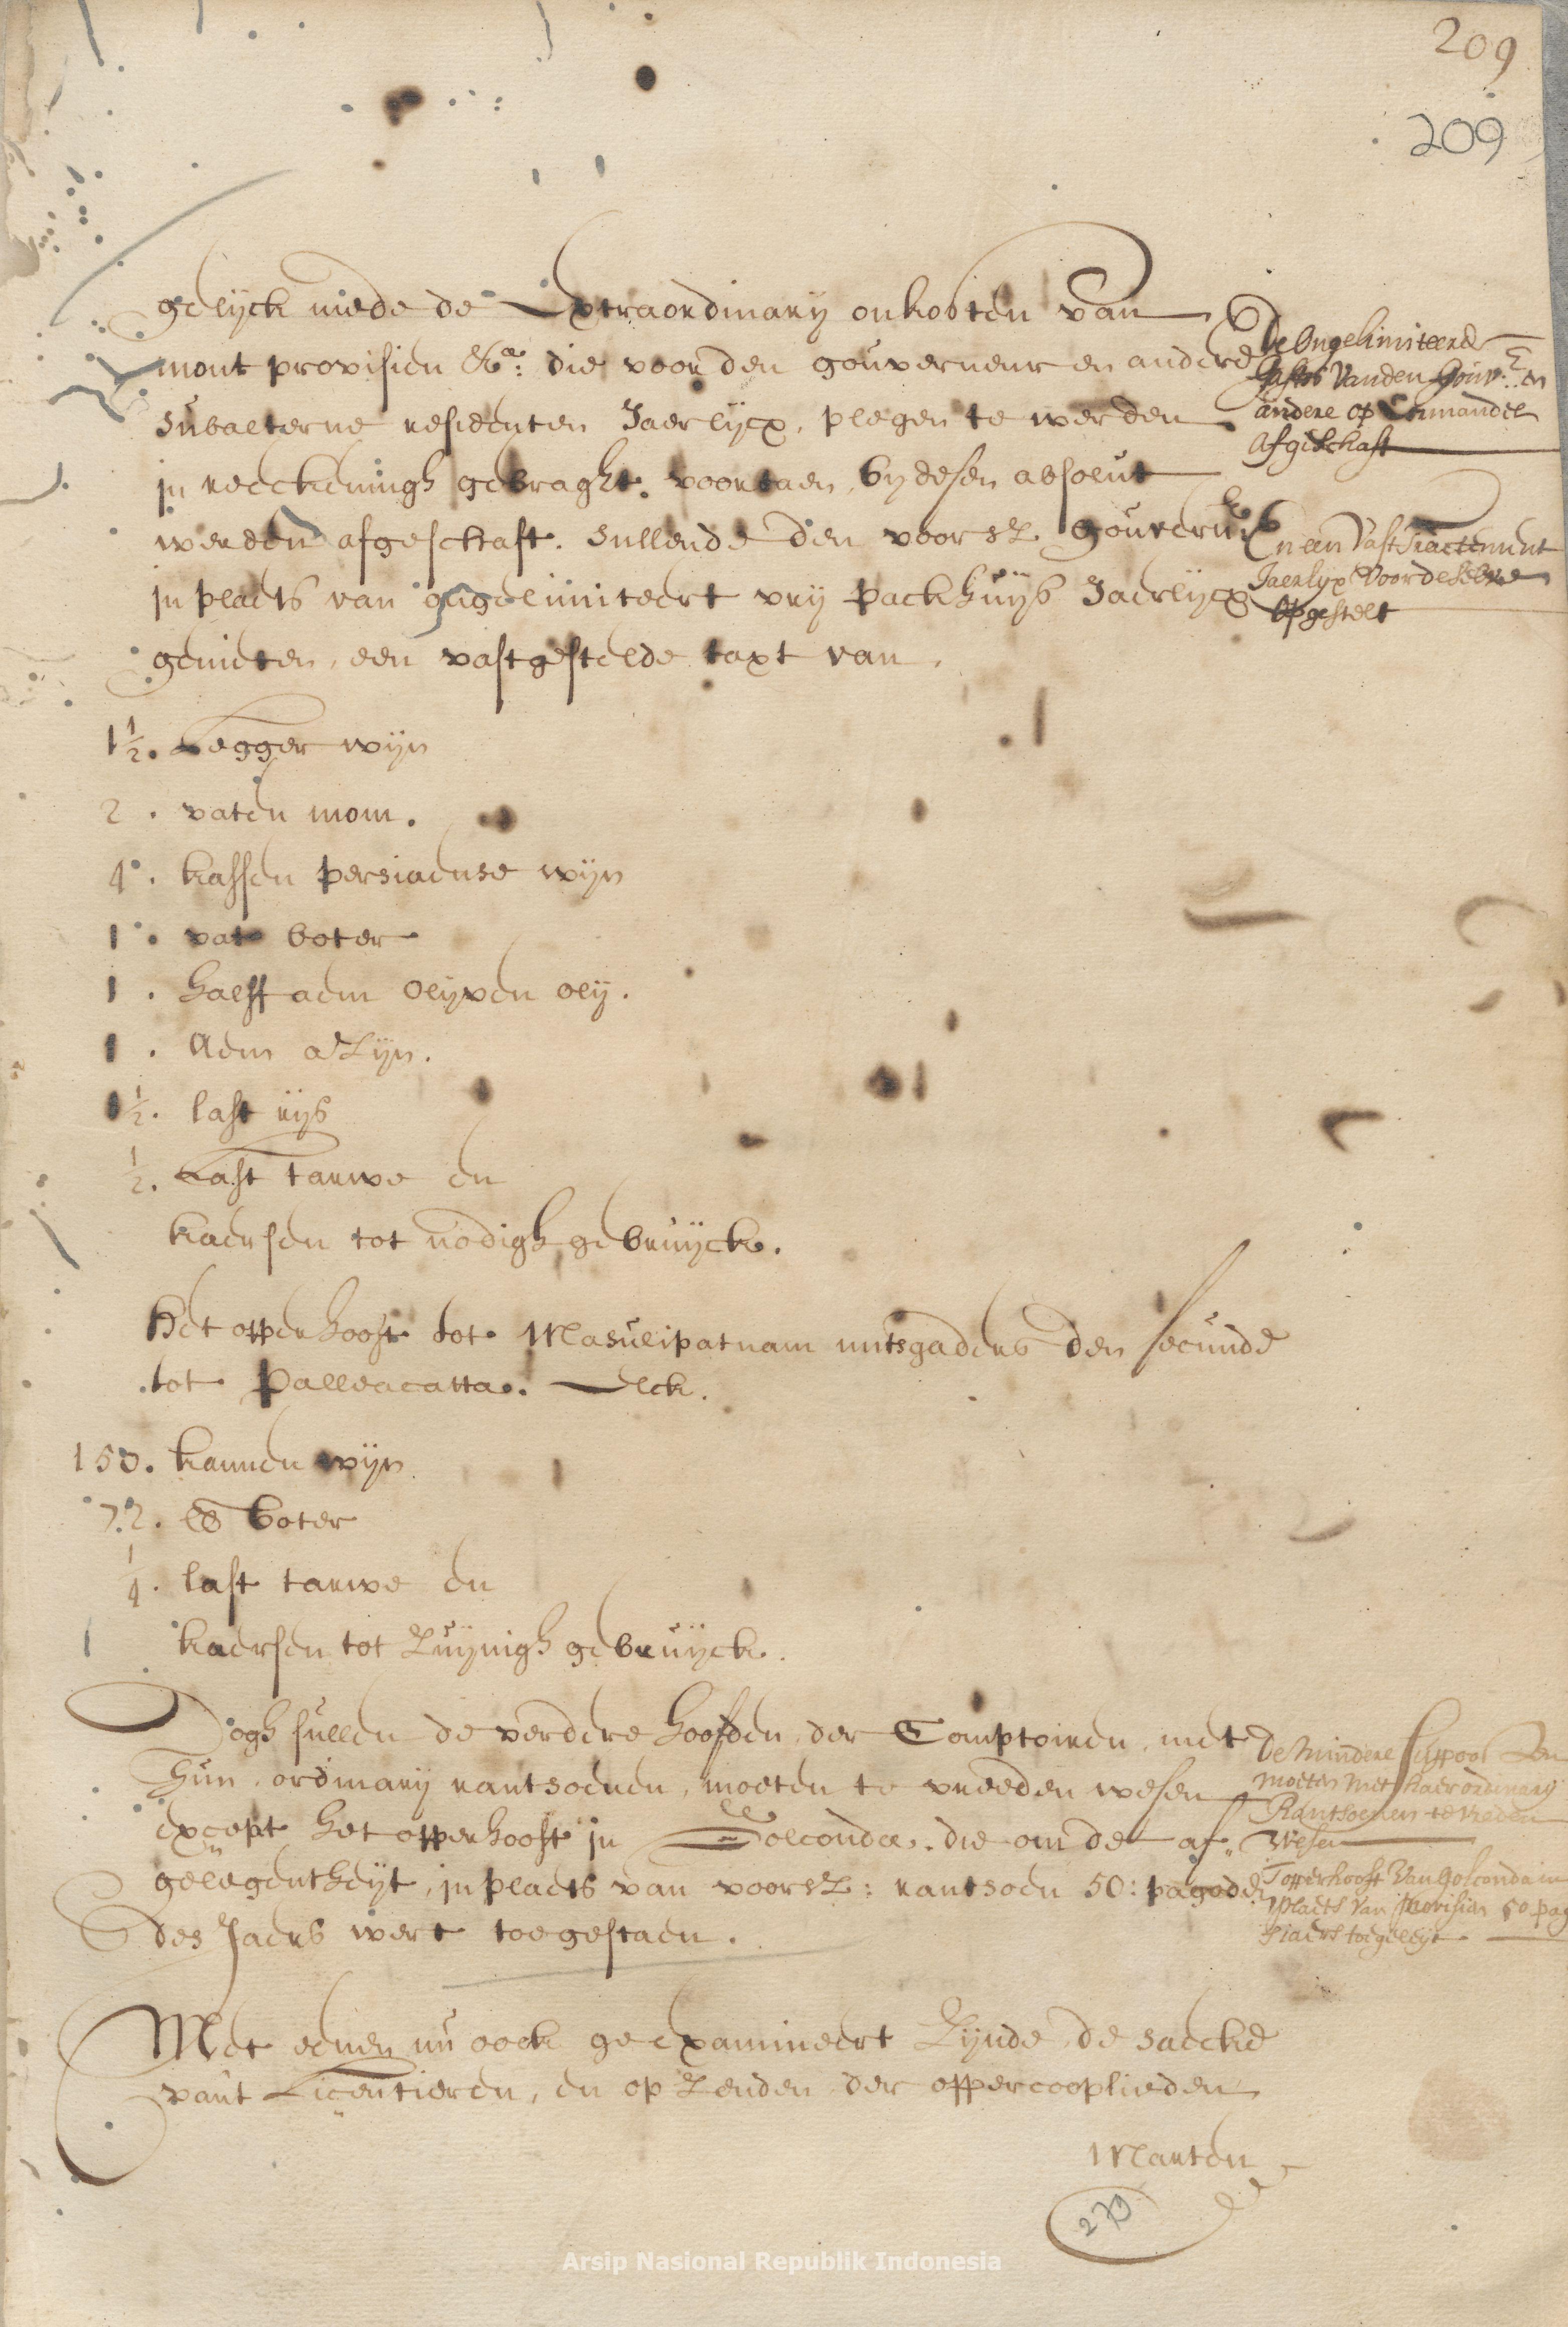 209
209
gelyck mede de Extraordinary onkosten van
mont provisien &ca: die voor den gouverneur en andere
subalterne residenten Jaerlycx, plegen te werden
in reeckeningh gebraght. voortaen, by desen absolut
werden afgeschaft. sullende den voorsz. gouverneur
in plaets van ongelimiteert vrij packhuys Jaerlycx
genieten, een vastgestelde taxt van,
De Ongelimiteerde
Gastos vanden Gouvr. en
andere op Cormandel
afgeschaft
En een Vast Tractement
Jaerlyx Voor deselve
opgestelt
1½. Legger wijn
2. vaten mom.
4. kassen persiaense wijn
1. vat boter
1. halff aem olijven olij.
1. Aem azijn.
1½. last rijs
½. Last tarwe en
kaersen tot nodigh gebruijck.
Het opperhooft tot Masulipatnam mitsgaders den secunde
tot Palleacatta. Elck.
150. kannen wijn
72. lb boter
¼. last tarwe en
kaersen tot zuijnigh gebruijck.
Dogh sullen de verdere hoofden, der Comptoiren, met
hun, ordinary rantsoenen, moeten te vreeden wesen
except het opperhooft in Golconda. die om de af-
gelegentheyt, in plaets van voorsz: rantsoen 50: pagoden
des Jaers wert toegestaen.
De Mindere Suppoosten
moeten met haer ordinary
Rantsoenen te vreden
Wesen
Topperhooft Van Golconda in
plaets van provisien 50 pag
siaers toegeleijt
Met eenen nu oock geexamineert zijnde, de saecke
vant Licentieren, en op zenden der oppercooplieden
Marten
279
Arsip Nasional Republik Indonesia